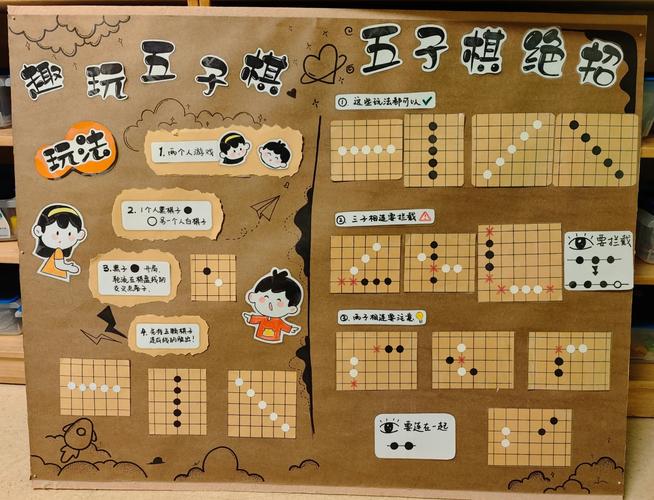 趣玩五子棋
玩法
1.两个人游戏
2.1个人黑棋子
另一个人白棋子
3.黑子 开局
轮流在棋盘线的
交叉点落子.
4.先将五颗棋子
连成线的胜出!
五子棋绝招
① 这些玩法都可以
② 三子相连要拦截
要拦截
③ 两子相连要注意
要连在一起